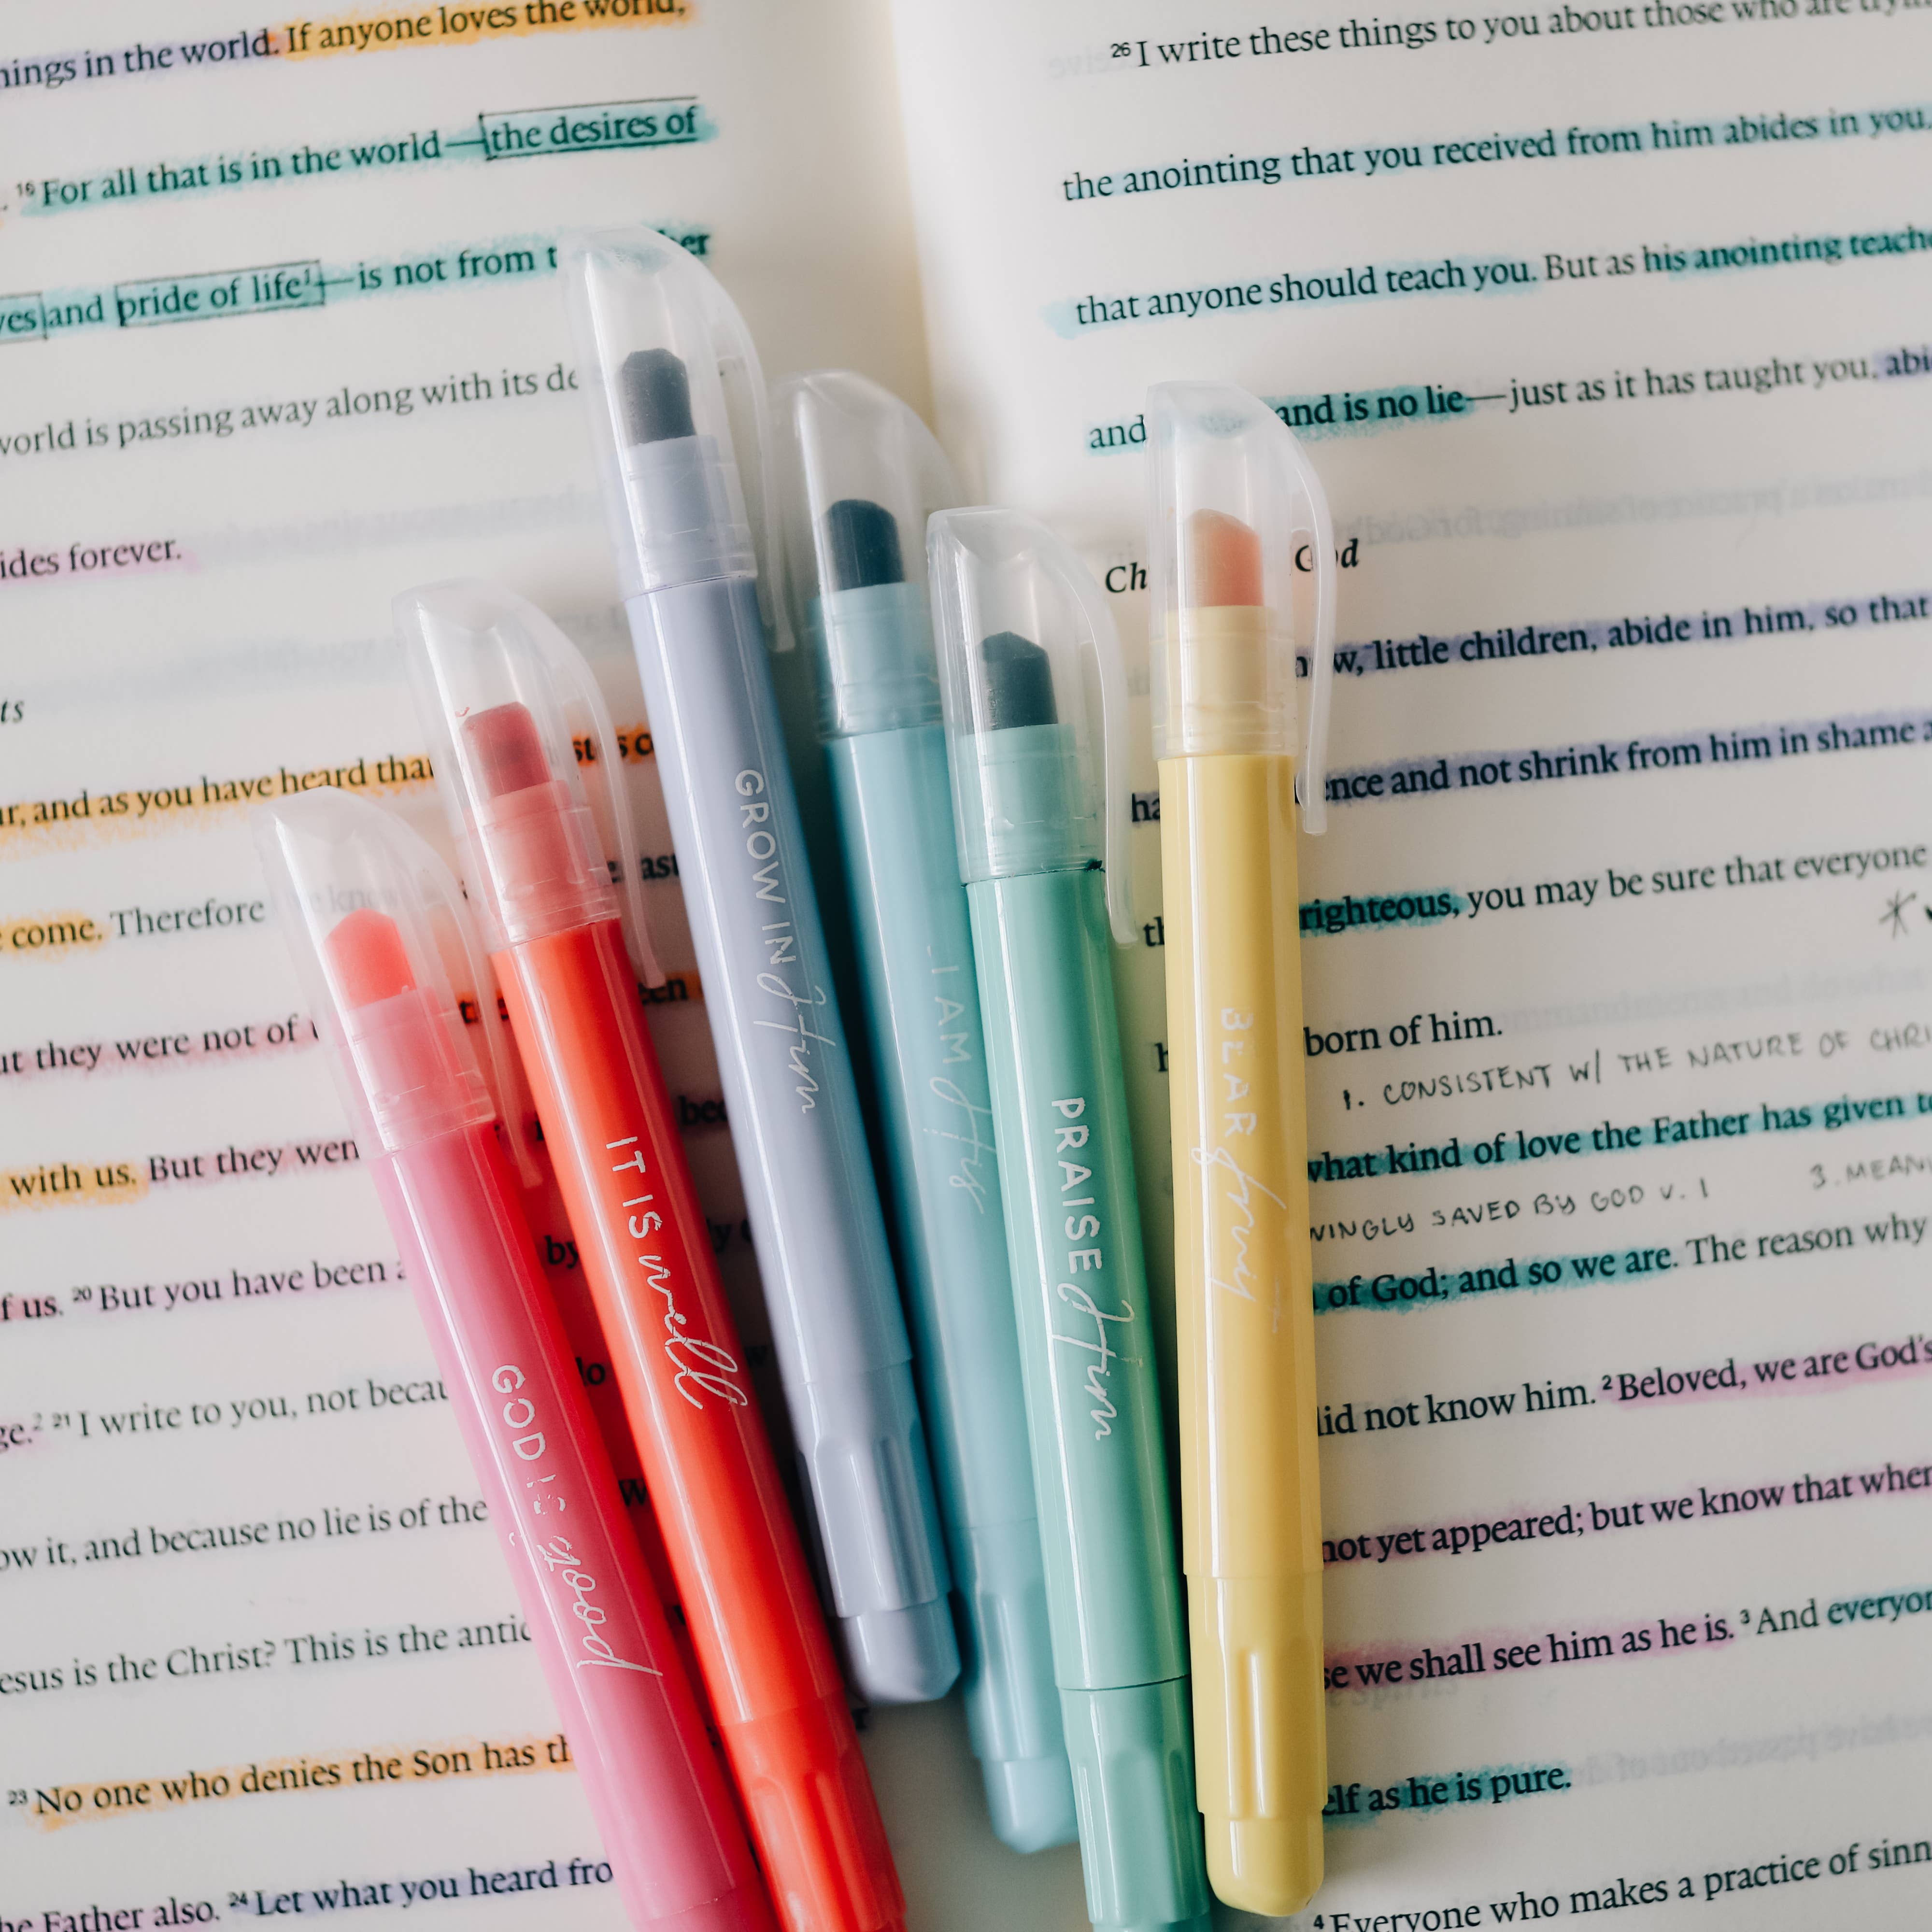 things in the world. If anyone loves the world,
16 For all that is in the world—the desires of
and pride of life1—is not from
world is passing away along with its
forever.
and as you have heard that
come. Therefore
they were not of
with us. But they
of us. 20 But you have been
2 21 I write to you, not
it, and because no lie is of the
Jesus is the Christ? This is the
23 No one who denies the Son has
Father also. 24 Let what you heard
26 I write these things to you about those who are
the anointing that you received from him abides in you,
that anyone should teach you. But as his anointing
and and is no lie—just as it has taught you,
God
little children, abide in him, so that
and not shrink from him in shame
righteous, you may be sure that everyone
born of him.
1. CONSISTENT W/ THE NATURE OF
what kind of love the Father has given
SAVED BY GOD V. 1 3.
of God; and so we are. The reason why
did not know him. 2 Beloved, we are God's
not yet appeared; but we know that when
we shall see him as he is. 3 And
as he is pure.
4 Everyone who makes a practice of
GOD IS good
IT IS well
GROW IN Him
I AM His
PRAISE Him
BEAR fruit